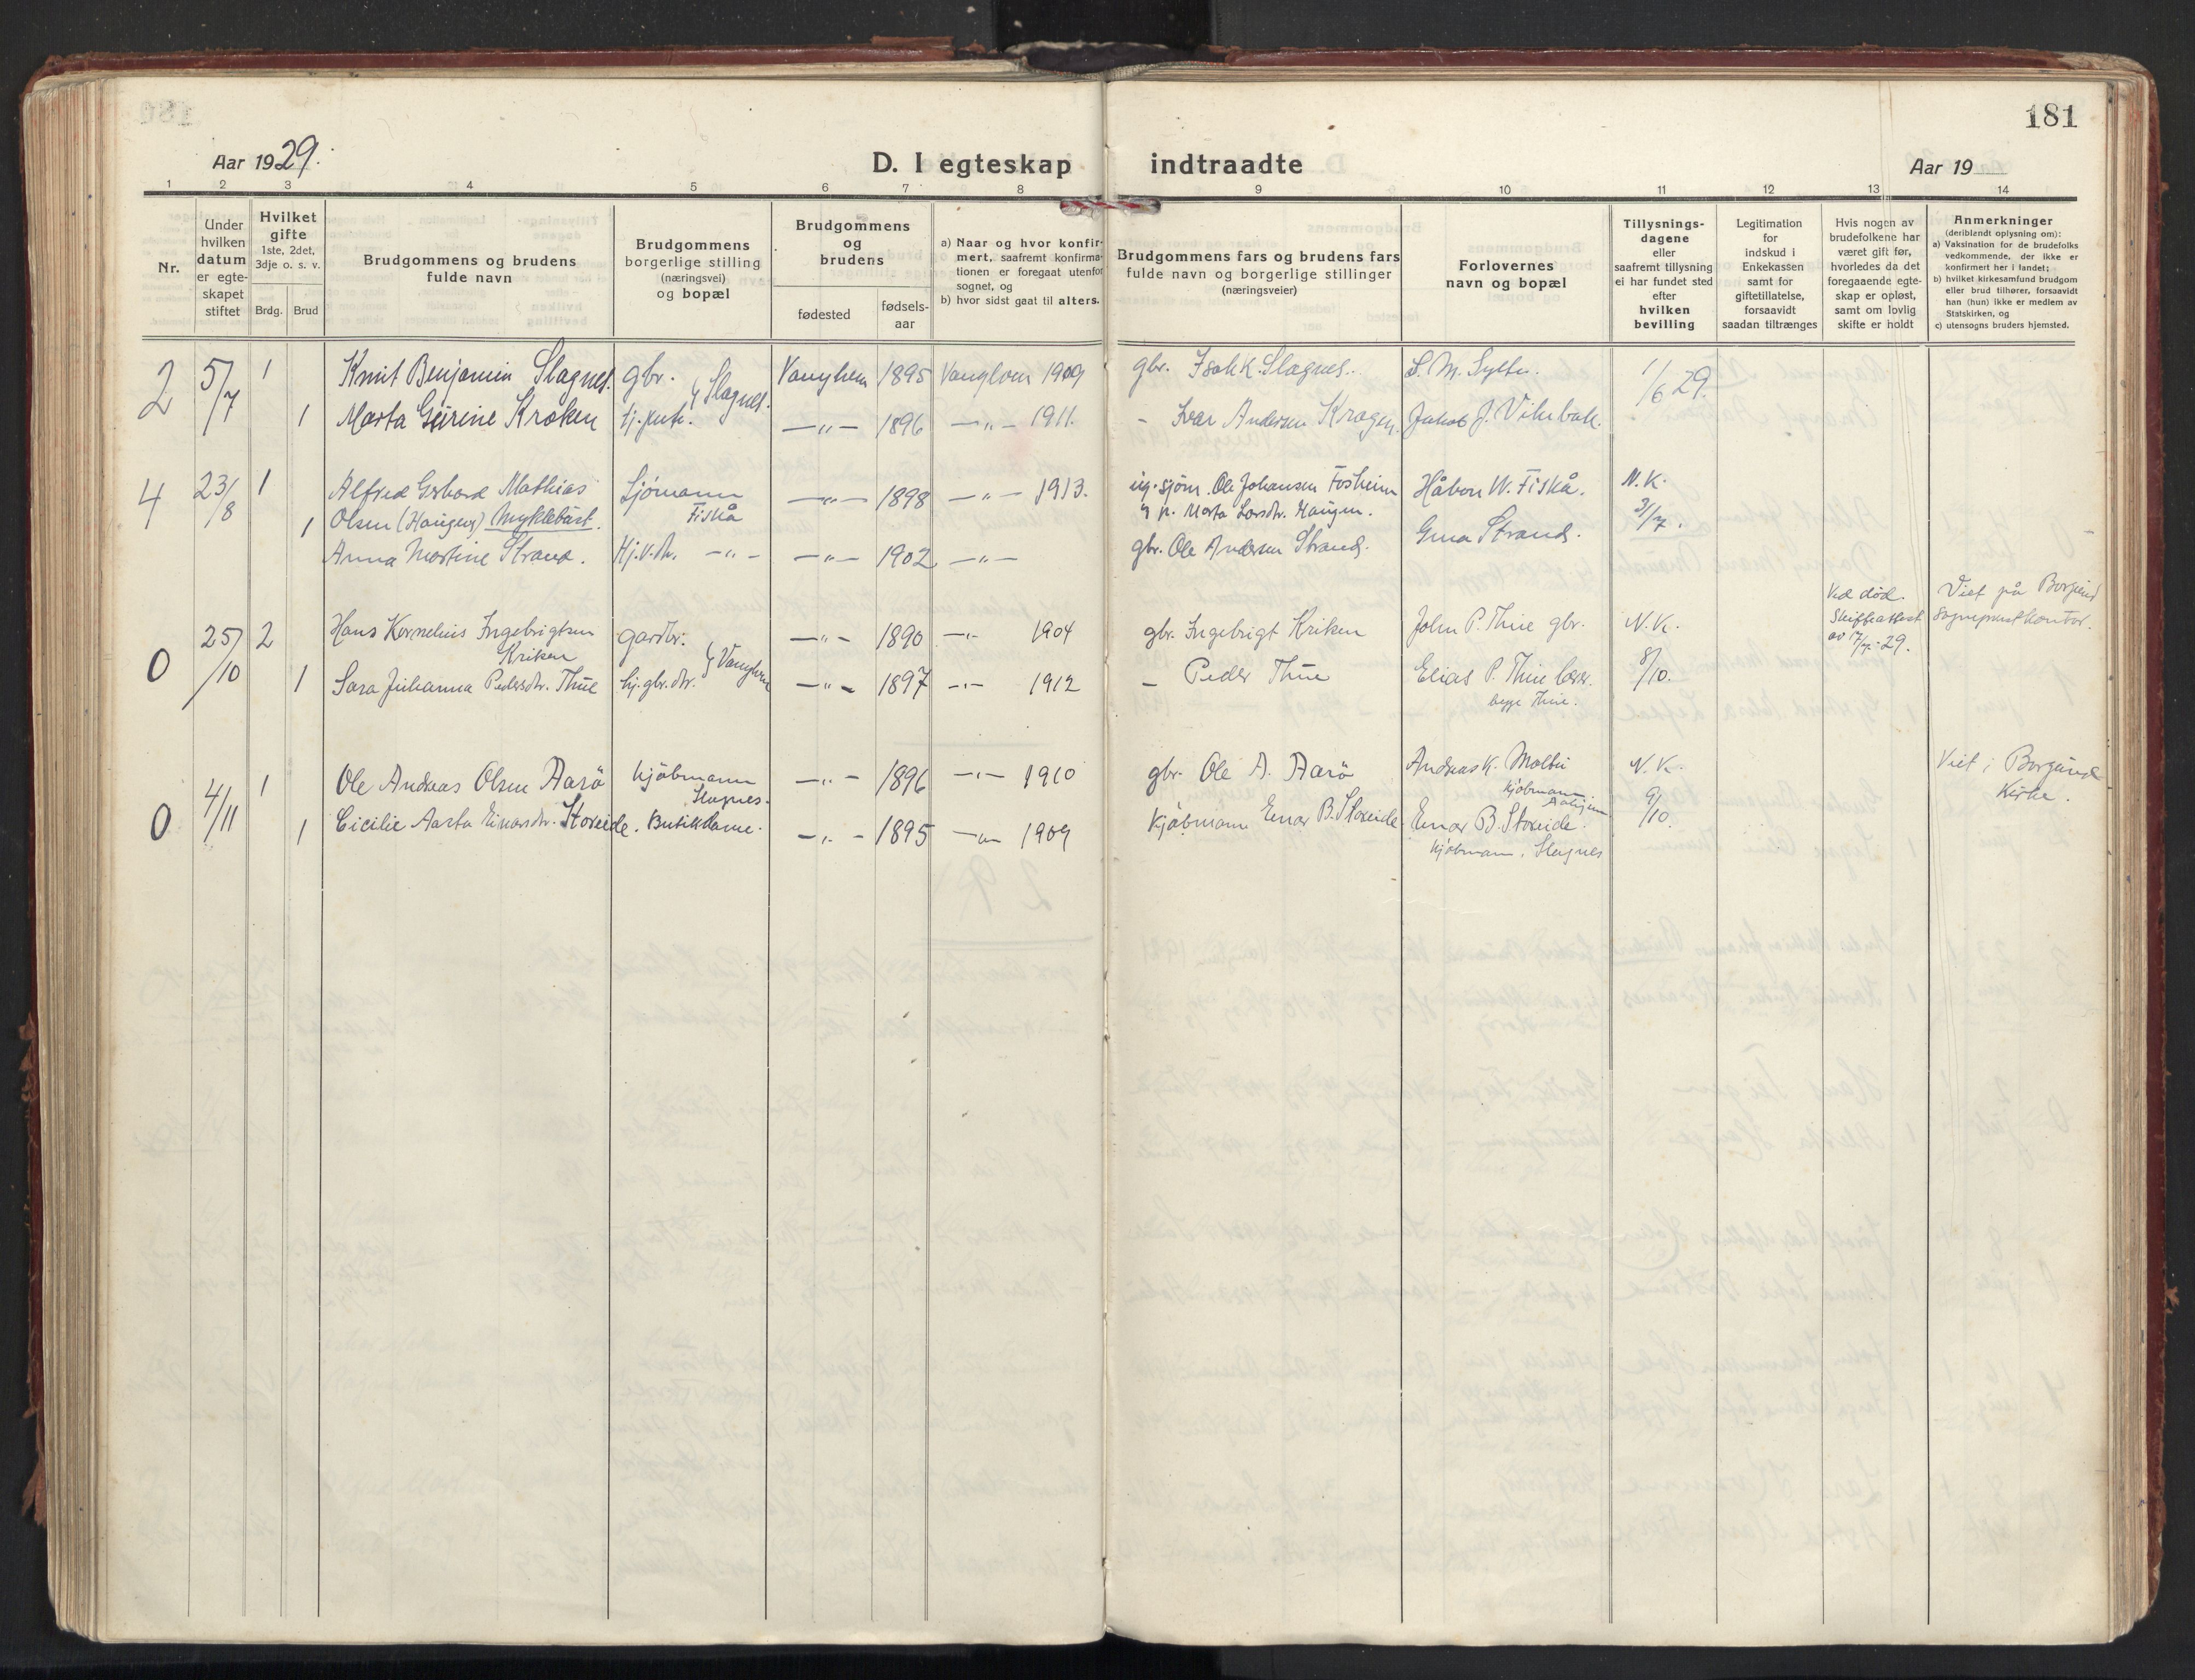 181
Aar 1929.
D. I egteskap indtraadte
Aar 19
1 2 3 4 5 6 7 8 9 10 11 12 13 14
Nr.
Under
hvilken
datum
er egte-
skapet
stiftet
Hvilket
gifte
1ste, 2det,
3dje o. s. v.
Brdg. Brud
Brudgommens og brudens
fulde navn
Brudgommens
borgerlige stilling
(næringsvei)
og bopæl
Brudgommens
og
brudens
fødested
fødsels-
aar
a) Naar og hvor konfir-
mert, saafremt konfirma-
tionen er foregaat utenfor
sognet, og
b) hvor sidst gaat til alters.
Brudgommens fars og brudens fars
fulde navn og borgerlige stillinger
(næringsveier)
Forlovernes
navn og bopæl
Tillysnings-
dagene
eller
saafremt tillysning
ei har fundet sted
efter
hvilken
bevilling
Legitimation
for
indskud i
Enkekassen
samt for
giftetillatelse,
forsaavidt
saadan tiltrænges
Hvis nogen av
brudefolkene har
været gift før,
hvorledes da det
foregaaende egte-
skap er opløst,
samt om lovlig
skifte er holdt
Anmerkninger
(deriblandt oplysning om):
a) Vaksination for de brudefolks
vedkommende, der ikke er
konfirmert her i landet;
b) hvilket kirkesamfund brudgom
eller brud tilhører, forsaavidt
han (hun) ikke er medlem av
Statskirken, og
c) utensogns bruders hjemsted.
2 5/7 1 Knut Benjamin Slagnes. gbr. Slagnes. 1895 1909 gbr. Isak K. Slagnes. S. M. Sylte. 1/6 29.
1 Marta Gurine Kroken 1896 —"— 1911. - Ivar Andersen Jakob J.
4 23/8 1 Alfred Gerhard Mathias Sjömann —"— 1898 —"— 1913. Ole Johansen Fosheim Håkon W. Fiskå. N.K.
Olsen (Haugen) Myklebust. Fiskå Marta Larsdtr. Haugen. 31/7.
1 Anna Martine Strand. —"— —"— 1902 —"— gbr. Ole Andersen Strand. Strand.
0 25/10 2 Hans Kornelius Ingebrigtsen gardbr. —"— 1890 —"— 1904 gbr. Ingebrigt Kriken John P. Thue gbr. N.K. Ved död. Skifteattest av 17/7-29. Viet på Borgund
Kriken sogneprestkontor.
1 Sara Johanna Pedersdtr. Thue hj. gbr. dtr. —"— 1897 —"— 1912 - Peder Thue Elias P. Thue 8/10.
begge Thue.
0 4/11 1 Ole Andreas Olsen Aarö kjöbmann —"— 1896 —"— 1910 gbr. Ole A. Aarö Andreas K. Moltu N.K. Viet i Borgund
Slagnes. kjöbmann Kirke.
1 Cicilie Aasta Einarsdtr. Storeide. Butikdame. —"— 1895 —"— 1909 Kjöbmann Einar B. Storeide Einar B. Storeide. 9/10.
kjöbmann, Slagnes